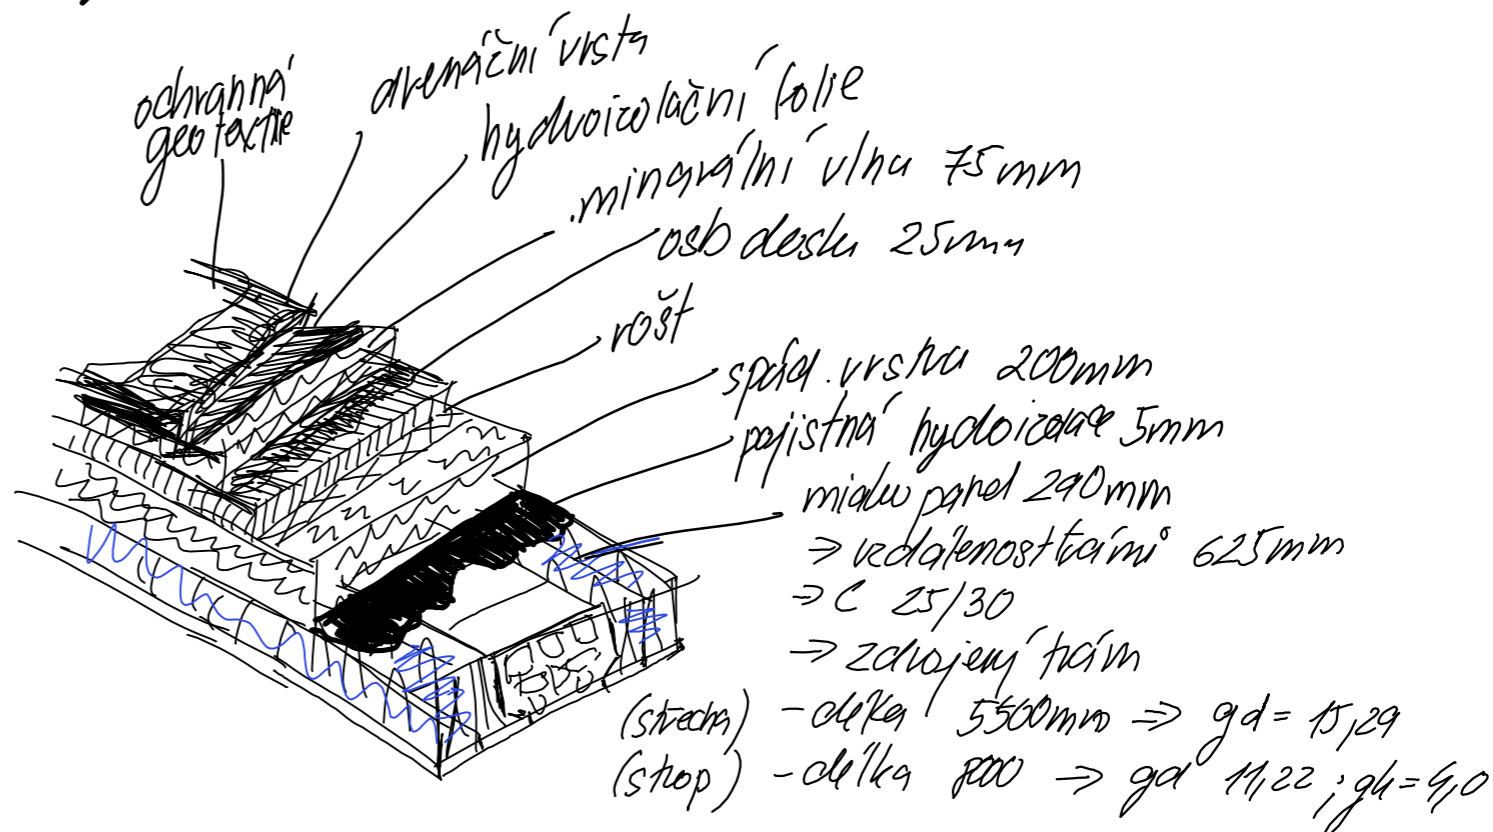 ochranná
geotextilie
drenážní vrsta
hydroizolační folie
minerální vlna 75mm
osb desku 25mm
rošt
spád. vrstva 200mm
pojistná hydroizolace 5mm
miaku panel 290mm
⇒ vzdálenost trámů 625mm
⇒ C 25/30
⇒ zdvojený trám
(střecha) - délka 5500mm ⇒ gd = 15,29
(strop) - délka 8000 ⇒ gd 11,22 ; gk = 4,0